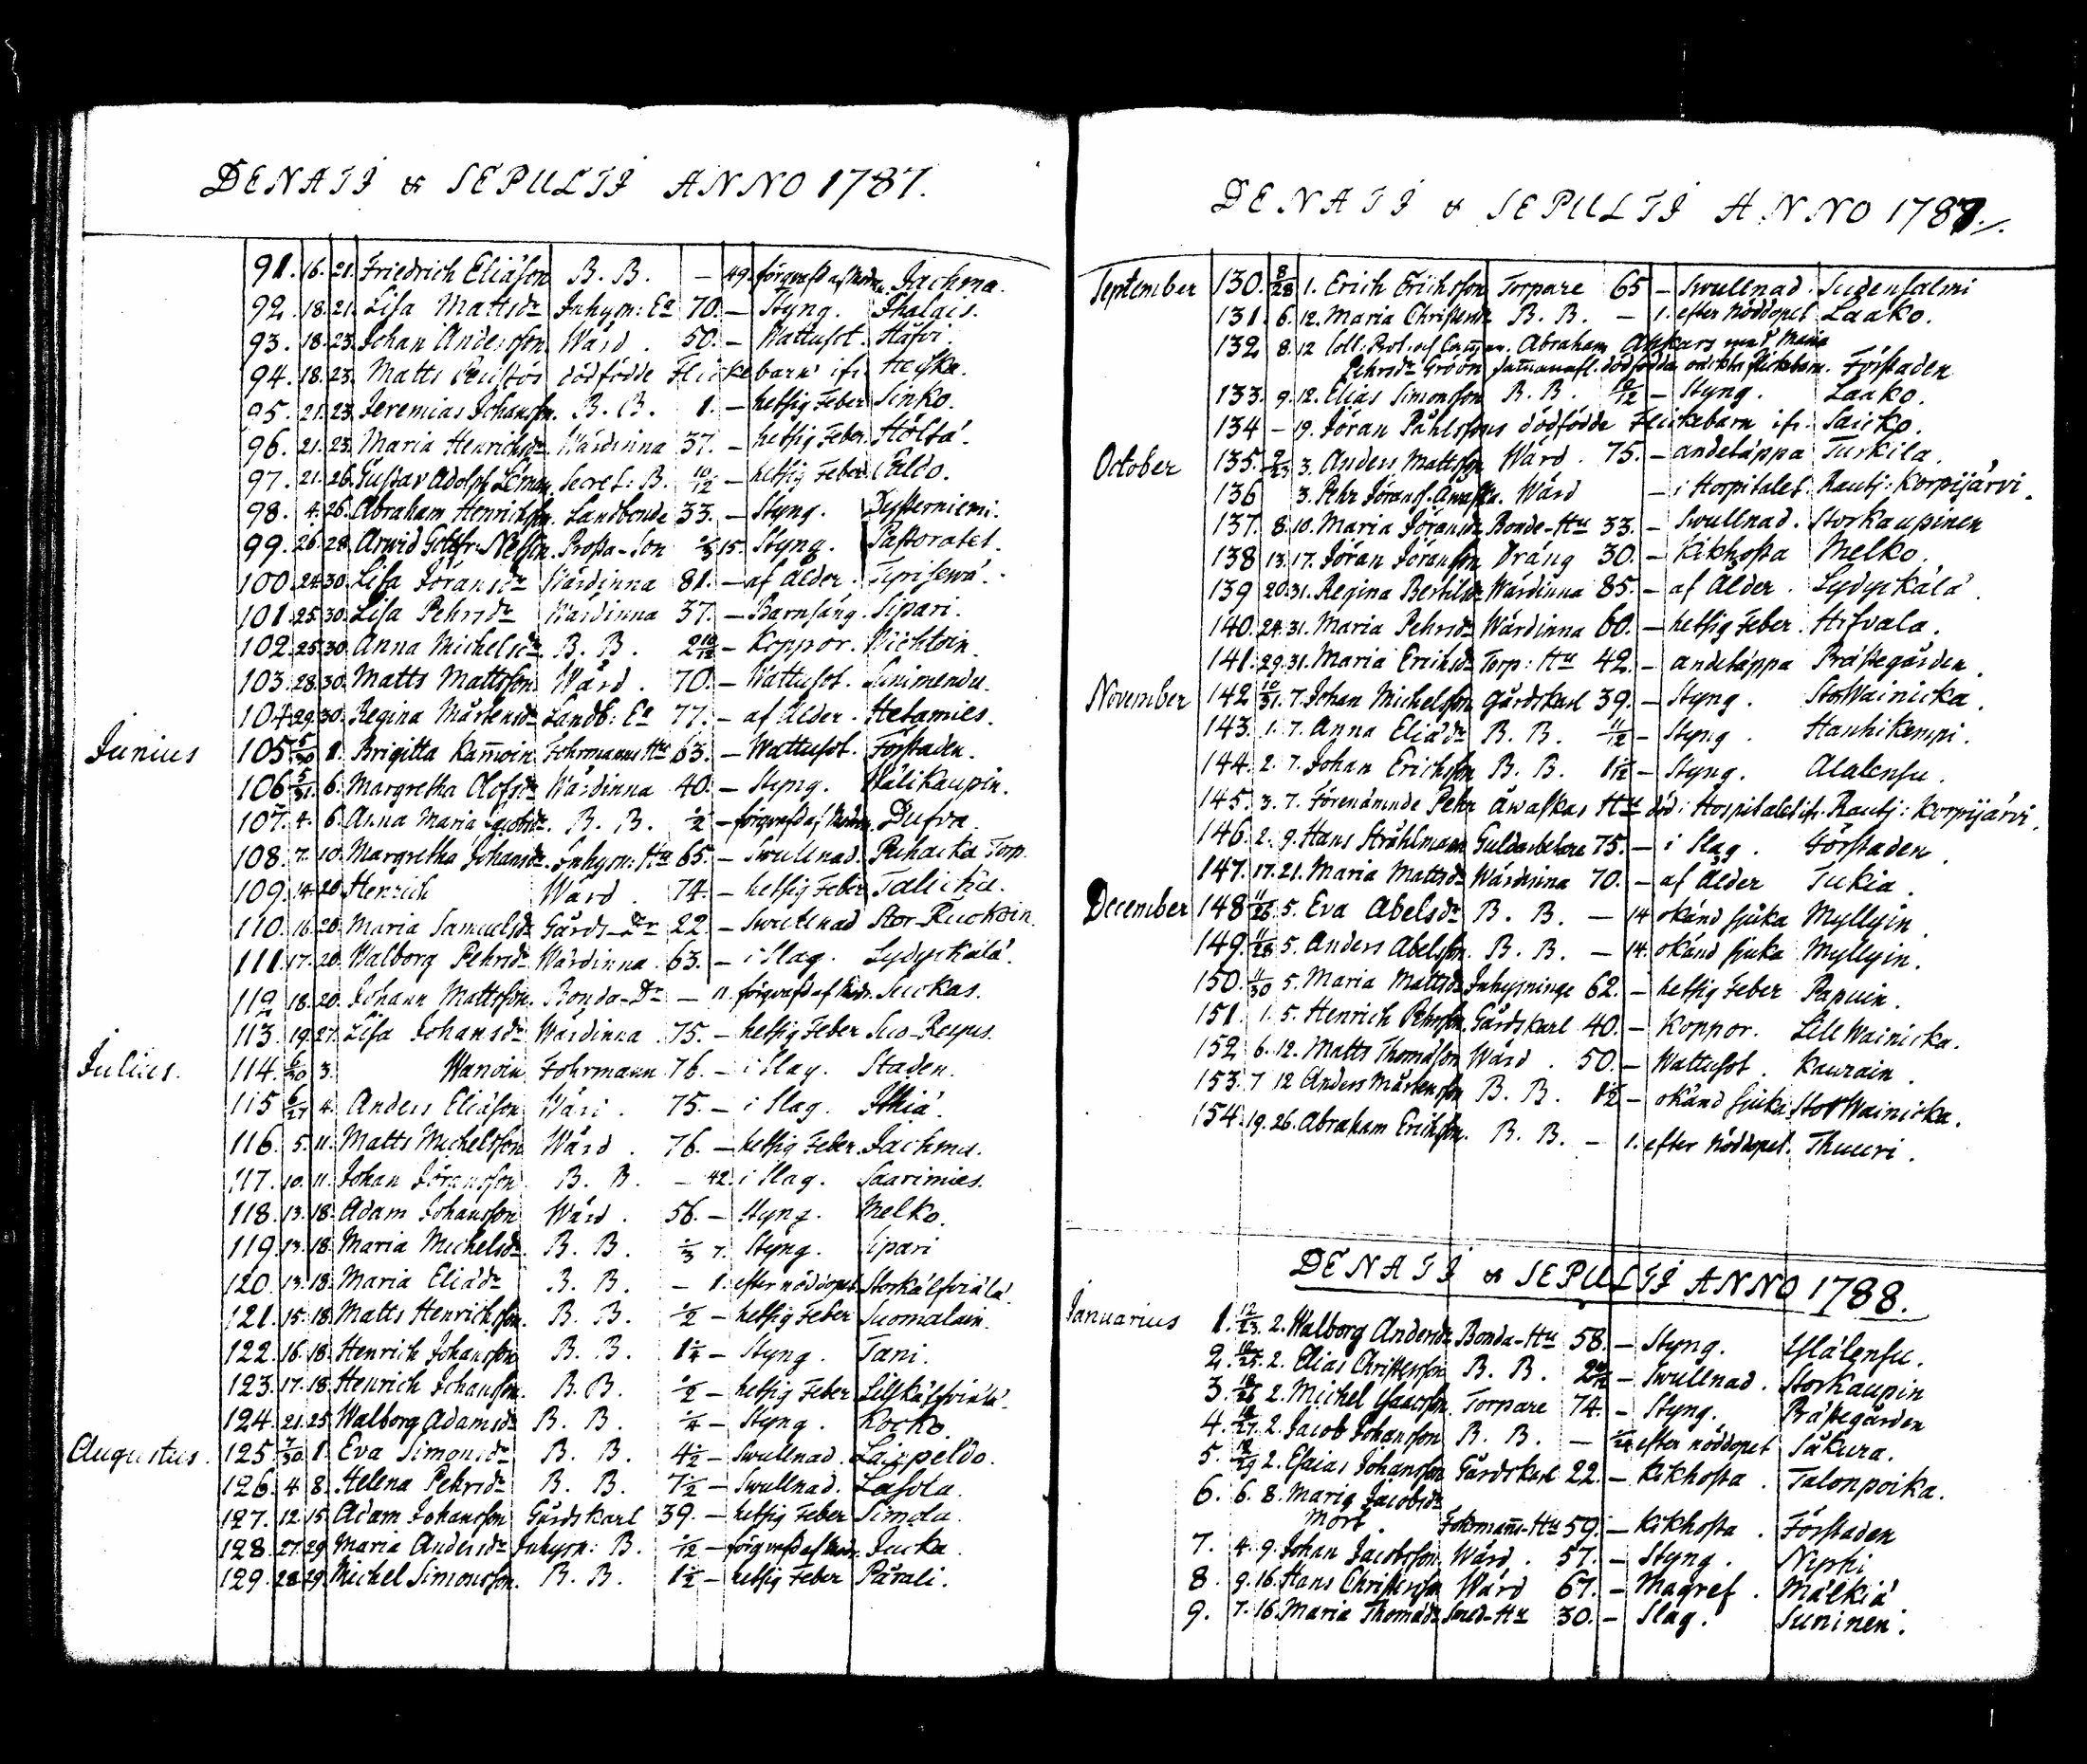 DENATI & SEPULTI ANNO 1787.
91. 16. 21. Friedrich Eliäson B. B. — 49. förqvafd af Modren Jackma.
92. 18. 21. Lisa Mattsdr Inhys: Ea 70. — Styng. Ihalais.
93. 18. 23. Johan Andersson Wärd. 50. — Wattusot. Häfvi.
94. 18. 23. Matts dödfödde Flickebarn ifr. Heiska.
95. 21. 23. Jeremias Johansson. B. B. 1. — hetsig Feber Sinko.
96. 21. 23. Maria Henrichsdr Wärdinna 37. — hetsig Feber. Höltä.
97. 21. 26. Gustav Adolph Leman. Secret: B. 10/12 — hetsig Feber
98. 4. 26. Abraham Henrichson. Landbonde 33. — Styng. Tysterniemi.
99. 26. 28. Arwid Gottfr: Prosta-Son 15. Styng. Pastoratet.
100. 24. 30. Lisa Jöransdr Wärdinna 81. — af Ålder.
101. 25. 30. Lisa Pehrsdr Wärdinna 37. — Barnsäng. Sipari.
102. 25. 30. Anna Michelsdr B. B. 2 10/12 — Koppor.
103. 28. 30. Matts Mattsson Wärd. 70. — Wattusot.
104. 29. 30. Regina Mårtensdr Landb: Ea 77. — af Ålder. Hetamies.
Junius 105. 5/30 1. Brigitta Kam̄oin Fohrmanns Hu 63. — Wattusot. Förstaden.
106. 5/31. 6. Margretha Olofsdr Wärdinna 40. — Styng. Wälikaupin.
107. 4. 6. Anna Maria B. B. 1/2 — förqvafd af Modren. Dufva.
108. 7. 10. Margretha Johansdr. Inhysn: Hu 65. — Swullnad. Puhacka Torp.
109. 14. 20. Henrich Wärd. 74. — hetsig Feber
110. 16. 20. Maria Samuelsdr Gårds-Dr 22. — Swullnad Stor-Ruokoin.
111. 17. 20. Walborg Pehrsdr Wärdinna. 63. — i Slag. Lydyskälä.
112. 18. 20. Johann Mattsson. Bonda-Dr — 11. förqvafd af Modr. Suckas.
113. 19. 27. Lisa Johansdr Wärdinna. 75. — hetsig Feber
Julius. 114. 6/30 3. Wanoin Fohrmann 76. — i Slag. Staden.
115 6/27 4. Anders Eliäson Wärd. 75. — i Slag. Ithiä.
116. 5. 11. Matts Michelsson Wärd. 76. — hetsig Feber. Jackma.
117. 10. 11. Johan Jöransson B. B. — 42. i Slag. Saarimies.
118. 13. 18. Adam Johansson Wärd. 56. — Styng. Melko.
119. 13. 18. Maria Michelsdr. B. B. 7. Styng. Sipari
120. 13. 18. Maria Eliädr B. B. — 1. efter nöddopet Storkälfviälä.
121. 15. 18. Matts Henrichson. B. B. 1/2 — hetsig Feber Suomalain.
122. 16. 18. Henrich Johansson B. B. 1 1/4 — Styng. Tani.
123. 17. 18. Henrich Johansson. B. B. 1/2 — hetsig Feber Lillkälfviälä.
124. 21. 25. Walborg Adamsdr B. B. 1/4 — Styng. Kocko.
Augustus. 125 7/30 1. Eva Simonsdr B. B. 4 1/2 — Swullnad. Laipeldo.
126. 4 8. Helena Pehrsdr B. B. 7 1/2 — Swullnad. Lasola.
127. 12. 15. Adam Johansson Gårdskarl 39. — hetsig Feber Simola.
128. 27. 29. Maria Andersdr Inhysn: B. 1/12 — förqvafd af Modr. Jucka.
129. 28 29. Michel Simonsson. B. B. 1 1/2 — hetsig Feber Pärali.
DENATI & SEPULTI ANNO 1787.
September 130. 8/28 1. Erich Erichsson Torpare 65 — Swullnad. Sudensalmi
131. 6. 12. Maria Christersdr B. B. — 1. efter Nöddopet Laako.
132 8. 12 Coll: Abraham Maria
Pehrsdr dödfödda oäckta flickebarn. Förstaden
133. 9. 12. Elias Simonsson B. B. 10/12 — Styng. Laako.
134 — 19. Jöran Påhlssons dödfödde Flickebarn ifr. Saicko.
October 135. 9/23 3. Anders Mattsson Wärd. 75. — andetäppa Turkila.
136 3. Pehr Jöranss. Äwaska. Wärd — i Hospitalet. Rautj: Korpijärvi.
137. 8. 10. Maria Jöransdr Bonde-Hu 33. — Swullnad. Storkaupinen
138 13. 17. Jöran Jöransson Dräng 30. — Kikhosta Melko.
139 20. 31. Regina Bertilsdr Wärdinna 85. — af Ålder. Lydyskälä.
140. 24. 31. Maria Pehrsdr Wärdinna 60. — hetsig Feber. Hifvala.
141. 29. 31. Maria Erichsdr Torp: Hu 42. — andetäppa Prästegården.
November 142 10/31. 7. Johan Michelsson Gårdskarl 39. — Styng. Stor Wainicka.
143. 1. 7. Anna Eliädr B. B. 11/12 — Styng. Hanhikempi.
144. 2. 7. Johan Erichsson B. B. — Styng. Alalensu.
145. 3. 7. Förenämnde Pehr Äwaskas Hu död i Hospitalet ifr. Rautj: Korpijärvi.
146. 2. 9. Hans Ströhlmann Guldarbetare 75. — i Slag. Förstaden.
147. 17. 21. Maria Mattsdr Wärdinna 70. — af Ålder Tukia.
December 148 11/26. 5. Eva Abelsdr B. B. — 14 okänd sjuka Myllyin.
149. 11/28 5. Anders Abelsson. B. B. — 14. okänd sjuka Myllyin.
150. 11/30 5. Maria Mattsdr Inhysninge 62. — hetsig Feber Papuin.
151. 1. 5. Henrich Pehrsson. Gårdskarl 40. — Koppor. Lill Wainicka.
152 6. 12. Matts Thomäson Wärd. 50. — Wattusot. Kaurain.
153. 7 12 Anders Mårtensson B. B. 1 1/2 — okänd sjuka Stor Wainicka.
154. 19. 26. Abraham Erichson. B. B. — 1. efter Nöddopet. Thuuri.
DENATI & SEPULTI ANNO 1788.
Januarius 1. 12/23. 2. Walborg Andersdr Bonda-Hu 58. — Styng. Ylälensu.
2. 12/25. 2. Elias Christersson B. B. — Swullnad. Storkaupin
3. 12/26 2. Michel Isaacsson Torpare 74. — Styng. Prästegården
4. 12/27. 2. Jacob Johansson B. B. — 1/24 efter nöddopet Säkura.
5. 12/29 2. Esaias Johansson Gårdskarl 22. — Kikhosta. Talonpoika.
6. 6. 8. Maria Jacobsdr
Mört Fohrman̄s-Hu 59. — Kikhosta. Förstaden
7. 4. 9. Johan Jacobsson Wärd. 57. — Styng. Nyrhi
8. 9. 16. Hans Christersson Wärd 67. — Magref. Mälkiä
9. 7. 16. Maria Thomädr Smed-Hu 30. — Slag. Suninen.